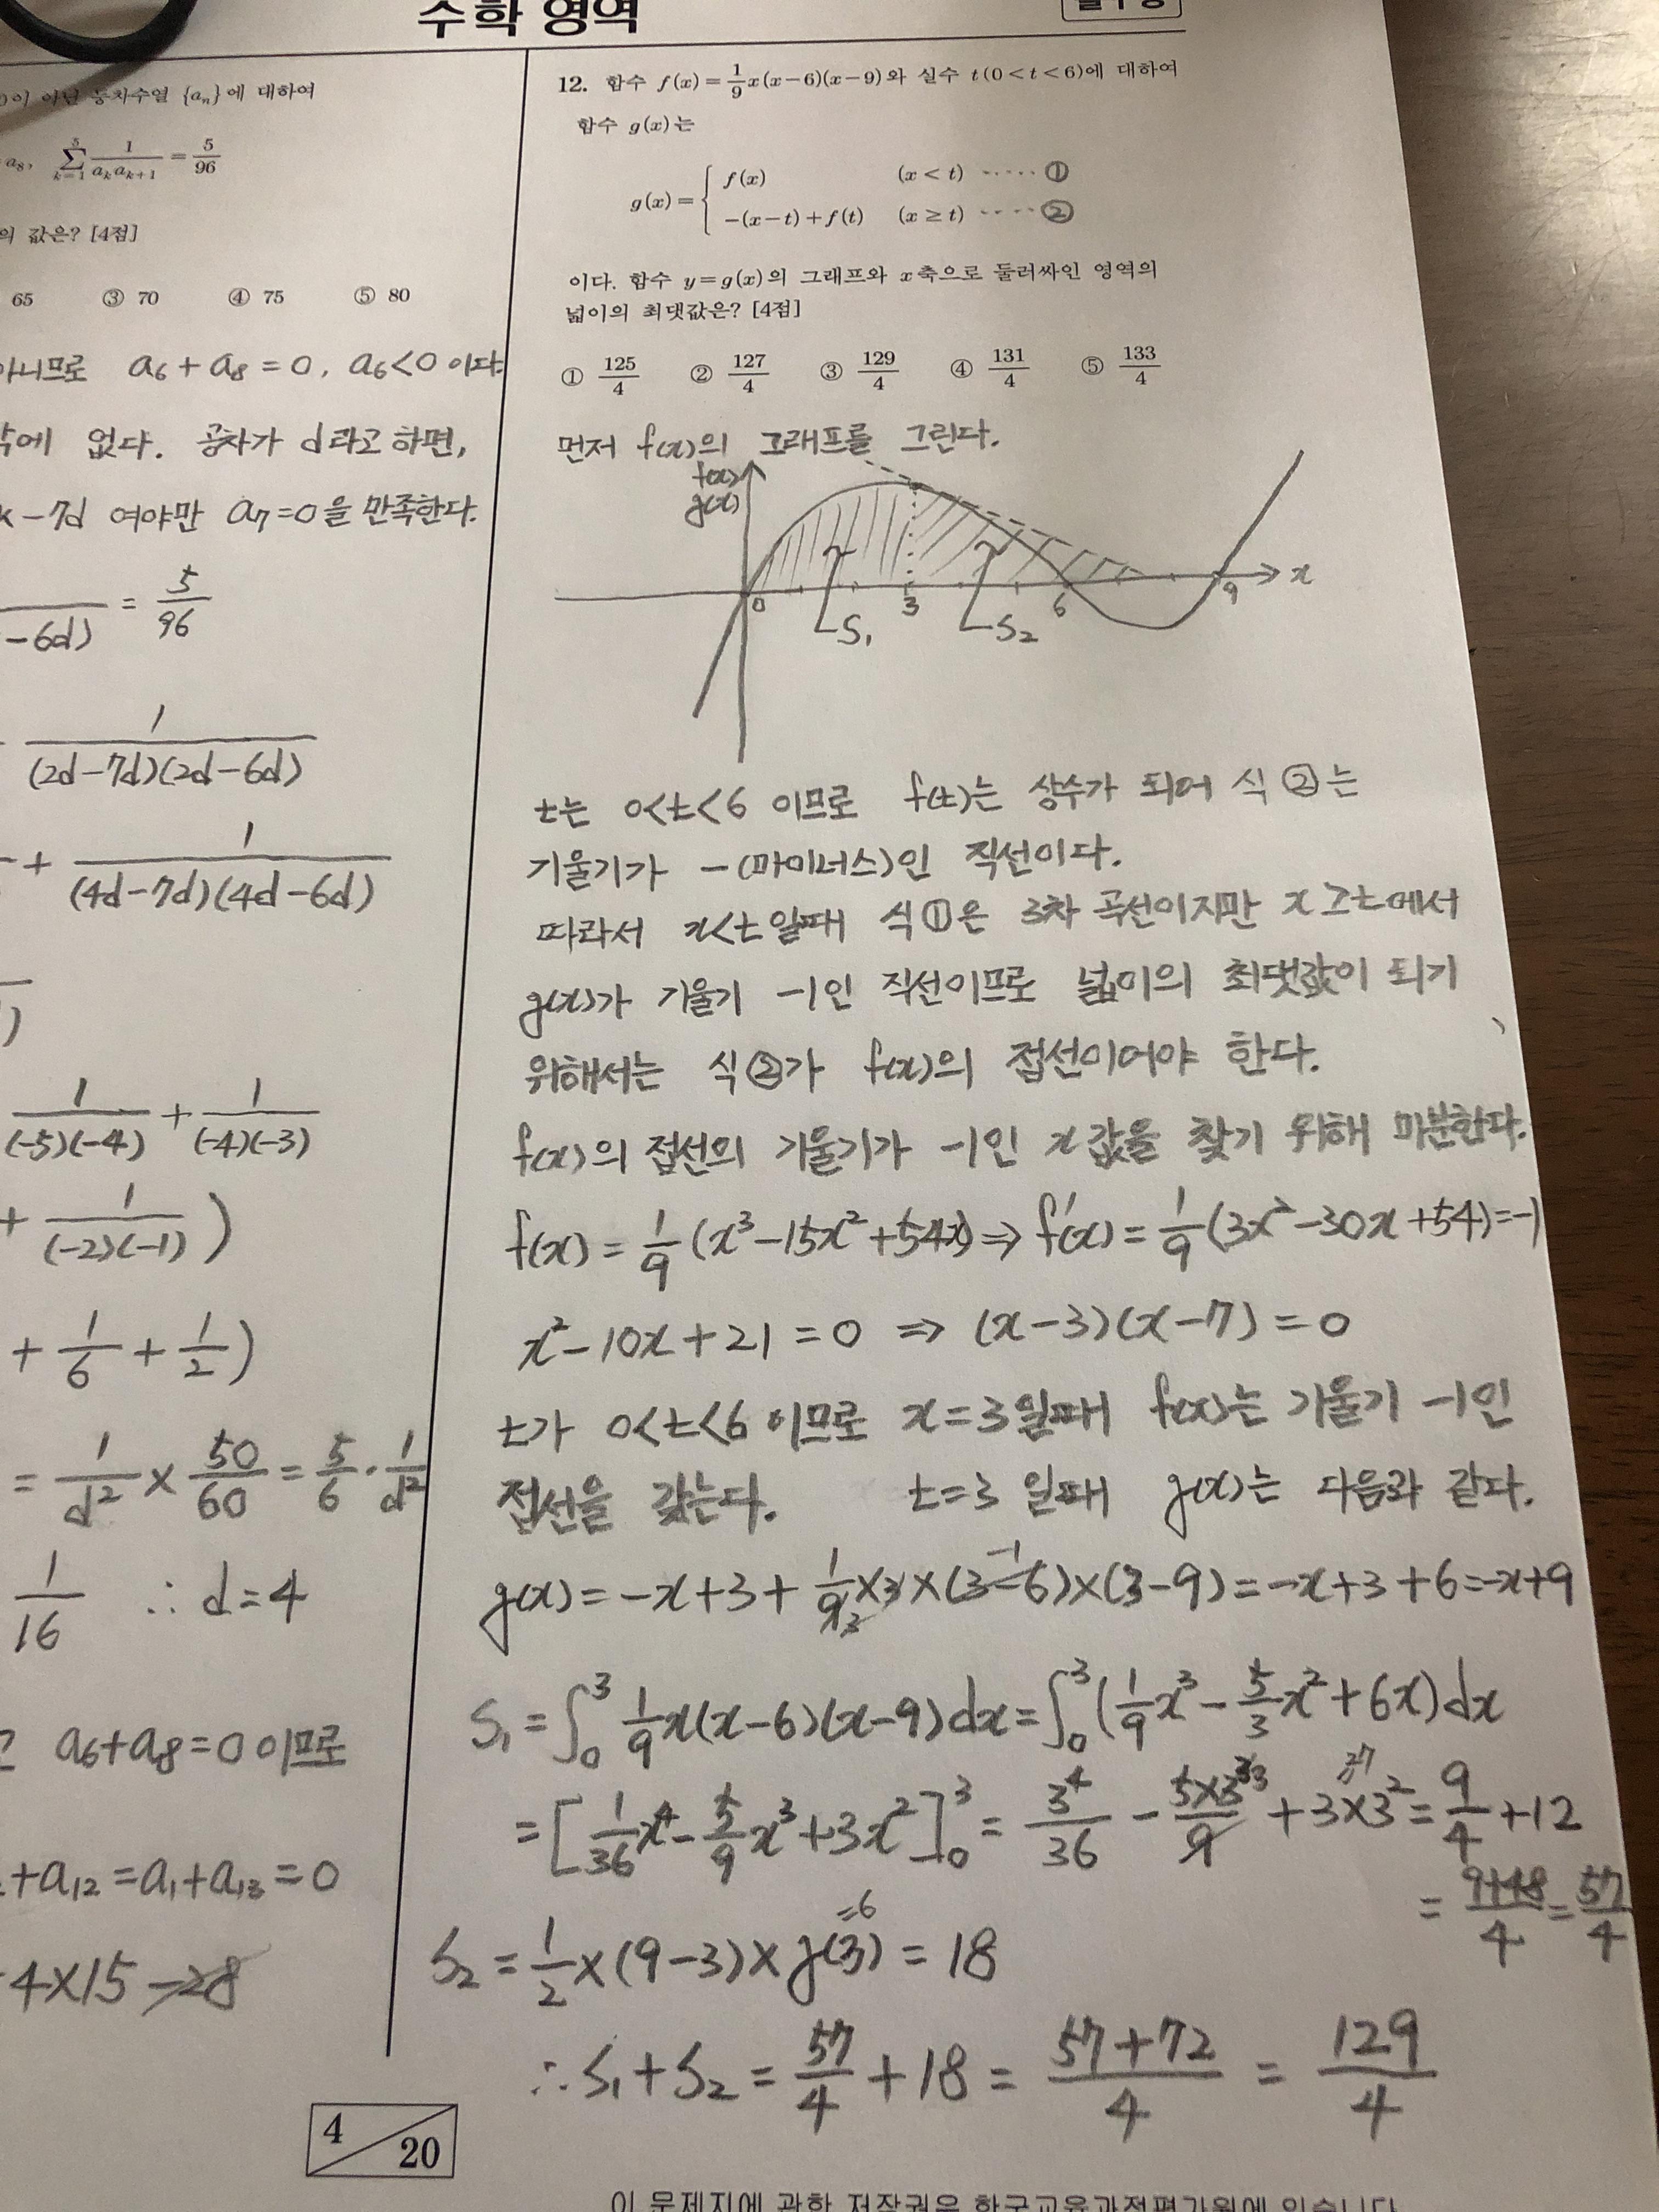 수학 영역
에 대하여
\sum_{k=1}^{5} \frac{1}{a_k a_{k+1}} = \frac{5}{96}
의 값은? [4점]
65 ③ 70 ④ 75 ⑤ 80
아니므로 a₆+a₈=0, a₆<0 이다.
밖에 없다. 공차가 d라고 하면,
-7d 여야만 a₇=0을 만족한다.
-6d) = \frac{5}{96}
\frac{1}{(2d-7d)(2d-6d)}
+ \frac{1}{(4d-7d)(4d-6d)}
\frac{1}{(-5)(-4)} + \frac{1}{(-4)(-3)}
+ \frac{1}{(-2)(-1)} )
+ \frac{1}{6} + \frac{1}{2} )
= \frac{1}{d²} × \frac{50}{60} = \frac{5}{6} · \frac{1}{d²}
\frac{1}{16} ∴ d=4
a₆+a₈=0 이므로
+a₁₂=a₁+a₁₃=0
4×15-28
4 / 20
12. 함수 f(x)=\frac{1}{9}x(x-6)(x-9)와 실수 t(0<t<6)에 대하여
함수 g(x)는
g(x)= { f(x) (x<t) ····· ①
-(x-t)+f(t) (x≥t) ···· ②
이다. 함수 y=g(x)의 그래프와 x축으로 둘러싸인 영역의
넓이의 최댓값은? [4점]
① \frac{125}{4} ② \frac{127}{4} ③ \frac{129}{4} ④ \frac{131}{4} ⑤ \frac{133}{4}
먼저 f(x)의 그래프를 그린다.
f(x)
g(x)
0 3 6 9 x
S₁ S₂
t는 0<t<6 이므로 f(t)는 상수가 되어 식 ②는
기울기가 -(마이너스)인 직선이다.
따라서 x<t 일때 식①은 3차 곡선이지만 x≥t에서
g(x)가 기울기 -1인 직선이므로 넓이의 최댓값이 되기
위해서는 식②가 f(x)의 접선이어야 한다.
f(x)의 접선의 기울기가 -1인 x값을 찾기 위해 미분한다.
f(x) = \frac{1}{9}(x³-15x²+54x) ⇒ f'(x) = \frac{1}{9}(3x²-30x+54)=-1
x²-10x+21=0 ⇒ (x-3)(x-7)=0
t가 0<t<6 이므로 x=3일때 f(x)는 기울기 -1인
접선을 갖는다. t=3 일때 g(x)는 다음과 같다.
g(x)=-x+3+\frac{1}{9}×3×(3-6)×(3-9)=-x+3+6=-x+9
S₁=∫₀³ \frac{1}{9}x(x-6)(x-9)dx=∫₀³(\frac{1}{9}x³-\frac{5}{3}x²+6x)dx
=[\frac{1}{36}x⁴-\frac{5}{9}x³+3x²]₀³=\frac{3⁴}{36}-\frac{5×3³}{9}+3×3²=\frac{9}{4}+12
=\frac{9+48}{4}=\frac{57}{4}
S₂=\frac{1}{2}×(9-3)×g(3)=18
=6
∴S₁+S₂=\frac{57}{4}+18=\frac{57+72}{4}=\frac{129}{4}
이 문제지에 관한 저작권은 한국교육과정평가원에 있습니다